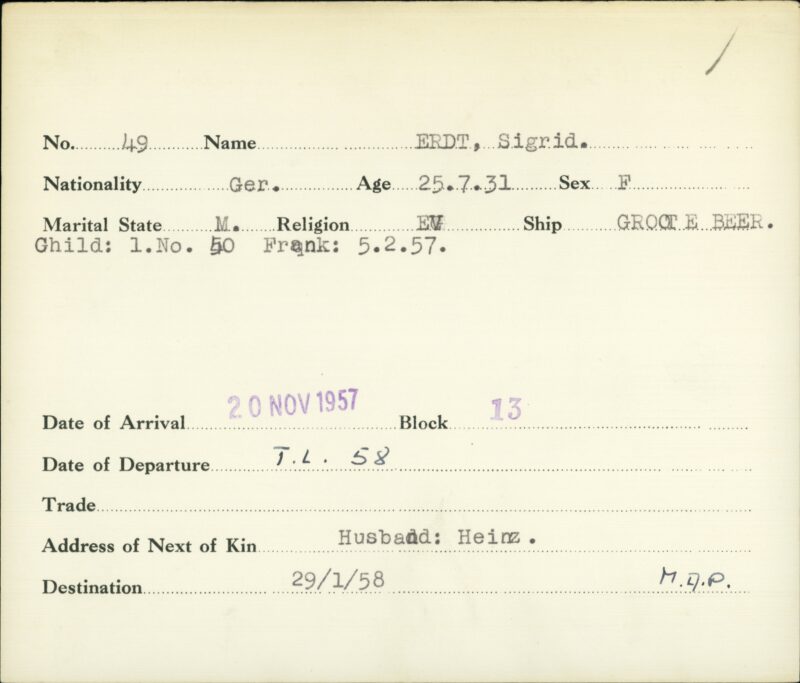 No. 49 Name ERDT, Sigrid.
Nationality Ger. Age 25.7.31 Sex F
Marital State M. Religion EV Ship GROOTE BEER.
Ghild: 1.No. 50 Frank: 5.2.57.
Date of Arrival 20 NOV 1957 Block 13
Date of Departure T.L. 58
Trade
Address of Next of Kin Husband: Heinz.
Destination 29/1/58 M.A.P.